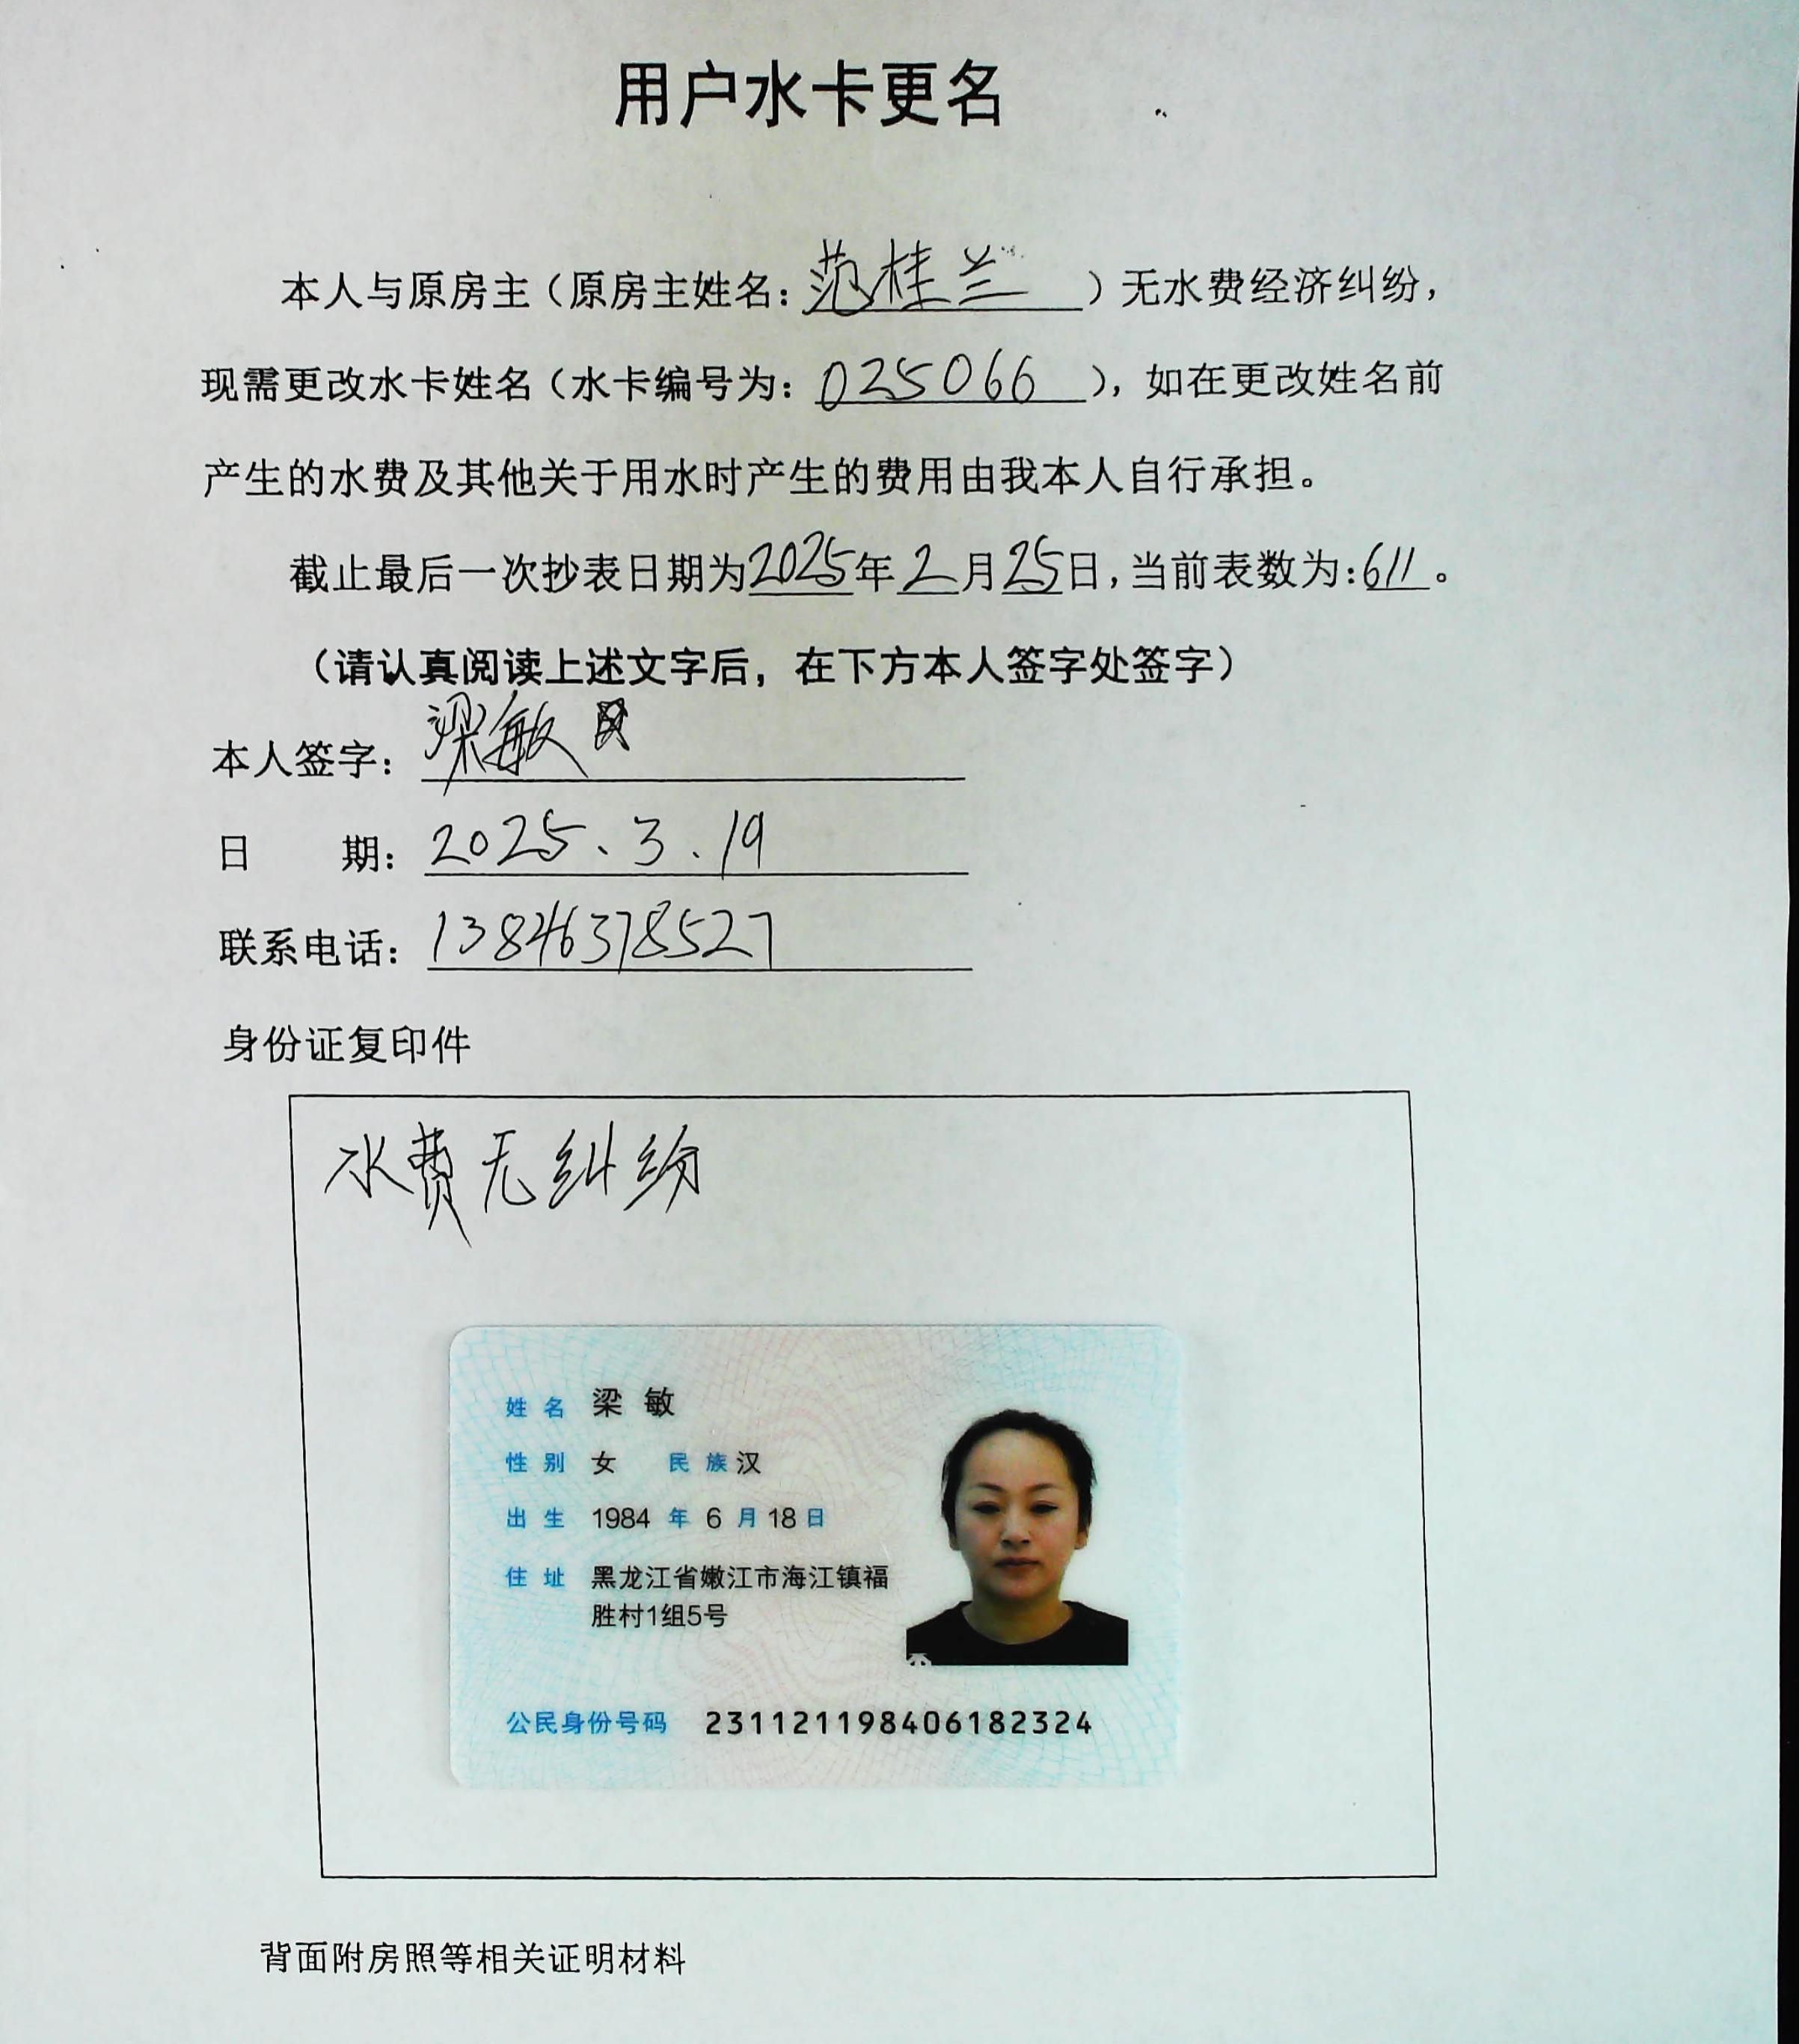 用户水卡更名
本人与原房主（原房主姓名：范桂兰）无水费经济纠纷，
现需更改水卡姓名（水卡编号为：025066），如在更改姓名前
产生的水费及其他关于用水时产生的费用由我本人自行承担。
截止最后一次抄表日期为2025年2月25日，当前表数为：611。
（请认真阅读上述文字后，在下方本人签字处签字）
本人签字：梁敏
日 期：2025、3.19
联系电话：13846378527
身份证复印件
水费无纠纷
姓名 梁敏
性别 女 民族 汉
出生 1984年6月18日
住址 黑龙江省嫩江市海江镇福
胜村1组5号
公民身份号码 231121198406182324
背面附房照等相关证明材料